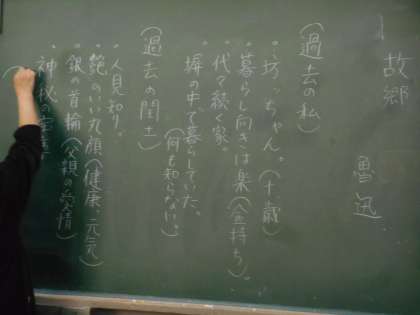 故郷
魯迅
(過去の私)
・坊っちゃん。(十歳)
・暮らし向きは楽(金持ち)。
・代々続く家。
・塀の中で暮らしていた。
(何も知らない。)
(過去の閏土)
・人見知り。
・艶のいい丸顔(健康、元気)
・銀の首輪(父親の愛情)
・神秘の宝庫
(